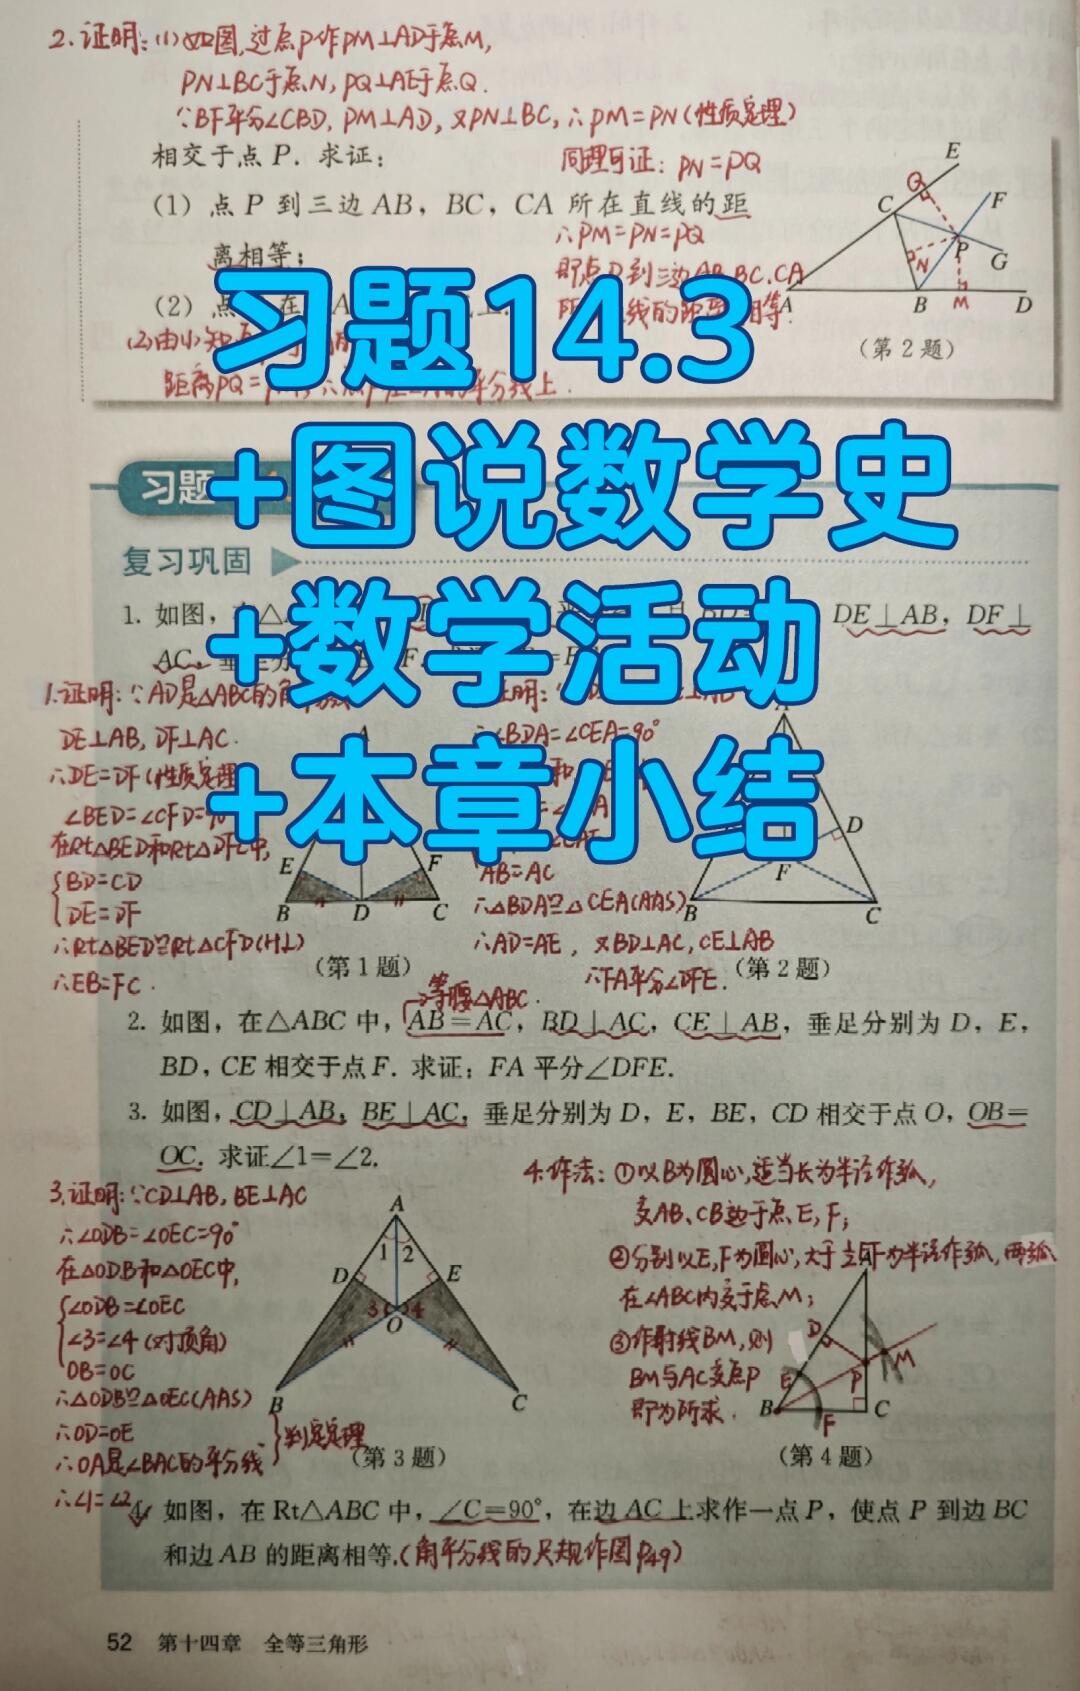 2.证明:(1)如图,过点P作PM⊥AD于点M,
PN⊥BC于点N,PQ⊥AE于点Q.
∵BF平分∠CBD,PM⊥AD,又PN⊥BC,∴PM=PN(性质定理)
相交于点P.求证:
同理可证:PN=PQ
(1)点P到三边AB,BC,CA所在直线的距
离相等;
∴PM=PN=PQ
即点P到三边AB、BC、CA
线的距 相等.
(2)点 在
(2)由(1)知
距离PQ= 平分线上.
E
Q
C
F
P
N
G
A
B
M
D
(第2题)
习题14.3
+图说数学史
+数学活动
+本章小结
习题
复习巩固
1. 如图, DE⊥AB,DF⊥
AC,
1.证明:∵AD是△ABC的角
DE⊥AB,DF⊥AC.
∴DE=DF(性质定理
∠BED=∠CFD=90
在Rt△BED和Rt△DFC中,
BD=CD
DE=DF
∴Rt△BED≌Rt△CFD(HL)
∴EB=FC.
A
E
F
B
D
C
(第1题)
∴∠BDA=∠CEA=90°
AB=AC
∴△BDA≌△CEA(AAS)
∴AD=AE,又BD⊥AC,CE⊥AB
∴FA平分∠DFE.
A
D
F
B
C
(第2题)
等腰△ABC.
2. 如图,在△ABC中,AB=AC,BD⊥AC,CE⊥AB,垂足分别为D,E,
BD,CE相交于点F.求证:FA平分∠DFE.
3. 如图,CD⊥AB,BE⊥AC,垂足分别为D,E,BE,CD相交于点O,OB=
OC.求证∠1=∠2.
3.证明:∵CD⊥AB,BE⊥AC
∴∠ODB=∠OEC=90°
在△ODB和△OEC中,
∠ODB=∠OEC
∠3=∠4(对顶角)
OB=OC
∴△ODB≌△OEC(AAS)
∴OD=OE
∴OA是∠BAC的平分线
判定定理
∴∠1=∠2
A
1 2
D
E
3 4
O
B
C
(第3题)
4.作法:①以B为圆心,适当长为半径作弧,
交AB、CB边于点E,F;
②分别以E,F为圆心,大于½EF为半径作弧,两弧
在∠ABC内交于点M;
③作射线BM,则
BM与AC交点P
即为所求.
A
D
M
E
P
B
F
C
(第4题)
4. 如图,在Rt△ABC中,∠C=90°,在边AC上求作一点P,使点P到边BC
和边AB的距离相等.(角平分线的尺规作图P49)
52 第十四章 全等三角形